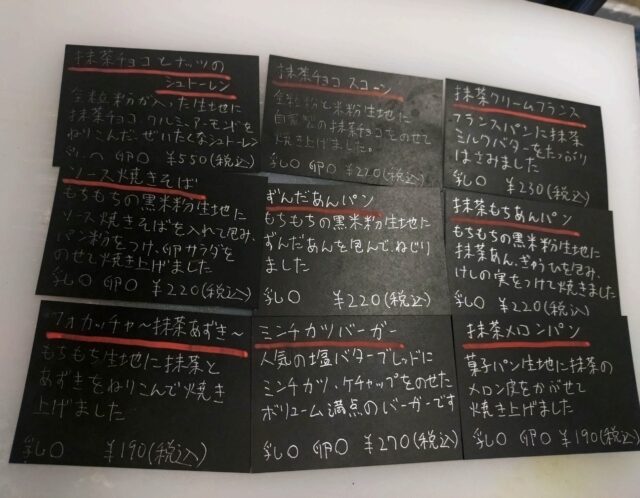 抹茶チョコとナッツの
シュトーレン
全粒粉が入った生地に
抹茶チョコ、クルミ、アーモンドを
ねりこんだ、ぜいたくなシュトーレン
乳○ 卵○ ¥550(税込)
抹茶チョコスコーン
全粒粉と米粉生地に
自家製の抹茶チョコをのせて
焼き上げました。
乳○ 卵○ ¥220(税込)
抹茶クリームフランス
フランスパンに抹茶
ミルクバターをたっぷり
はさみました
乳○ ¥230(税込)
ソース焼きそば
もちもちの黒米粉生地に
ソース焼きそばを入れて包み、
パン粉をつけ、卵サラダを
のせて焼き上げました
乳○ 卵○ ¥220(税込)
ずんだあんパン
もちもちの黒米粉生地に
ずんだあんを包んで、ねじり
ました
乳○ ¥220(税込)
抹茶もちあんパン
もちもちの黒米粉生地に
抹茶あん、ぎゅうひを包み、
けしの実をつけて焼きました
乳○ ¥220(税込)
フォカッチャ〜抹茶あずき〜
もちもち生地に抹茶と
あずきをねりこんで焼き
上げました
乳○ ¥190(税込)
ミンチカツバーガー
人気の塩バターブレッドに
ミンチカツ、ケチャップをのせた
ボリューム満点のバーガーです
乳○ 卵○ ¥270(税込)
抹茶メロンパン
菓子パン生地に抹茶の
メロン皮をかぶせて
焼き上げました
乳○ 卵○ ¥190(税込)